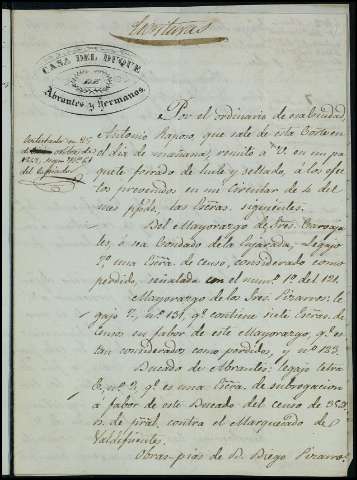 Escrituras
CASA DEL DUQUE
DE
Abrantes y Hermanos.
Contestado en 25
de octubre de
del Copiador
Por el ordinario de esa ciudad,
Antonio Raposo que sale de esta Corte en
el dia de mañana, remito a V. en un pa-
quete forrado de hule y sellado, a los efec
tos prevenidos en mi Circular de 4 del
mes ppdo, las Escras. siguientes.
Del Mayorazgo de Sres. Carvaja-
les, ó sea Condado de la Enjarada, Legajo
7º una Escra. de censo, considerado como
perdido, señalada con el num.º 1º del 124
Mayorazgo de los Sres Pizarros: le
gajo 7, nº 131, qe. contiene siete Escras. de
censos en fabor de este Mayorazgo, qe. es
tan considerados como perdidos, y nº 133.
Ducado de Abrantes: legajo letra
nº 9, qe. es una Escra. de subrogacion
á fabor de este Ducado del censo de
rs. de pral, contra el Marquesado de
Valdefuentes.
Obras-pias de D. Diego Pizarro: